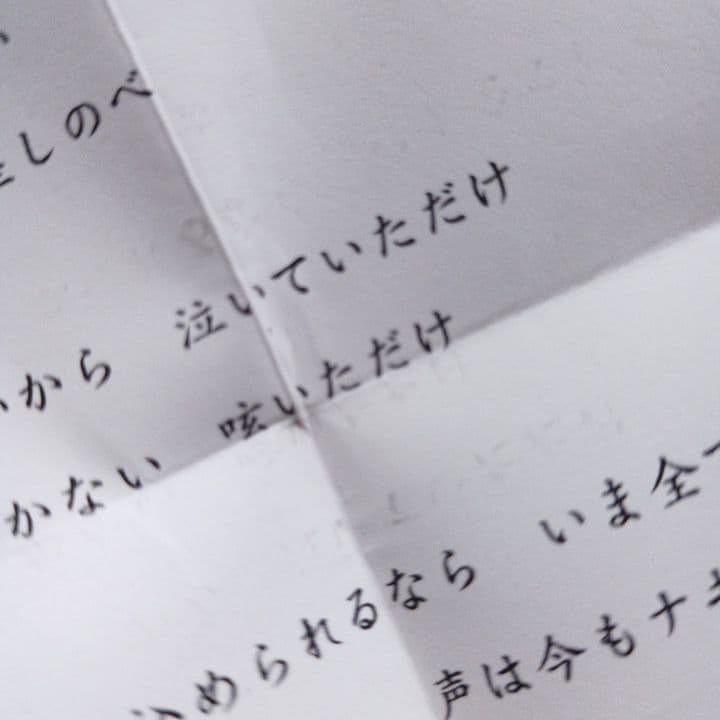 しのべ
から 泣いていただけ
かない 呟いただけ
められるなら いま全
声は今もナ